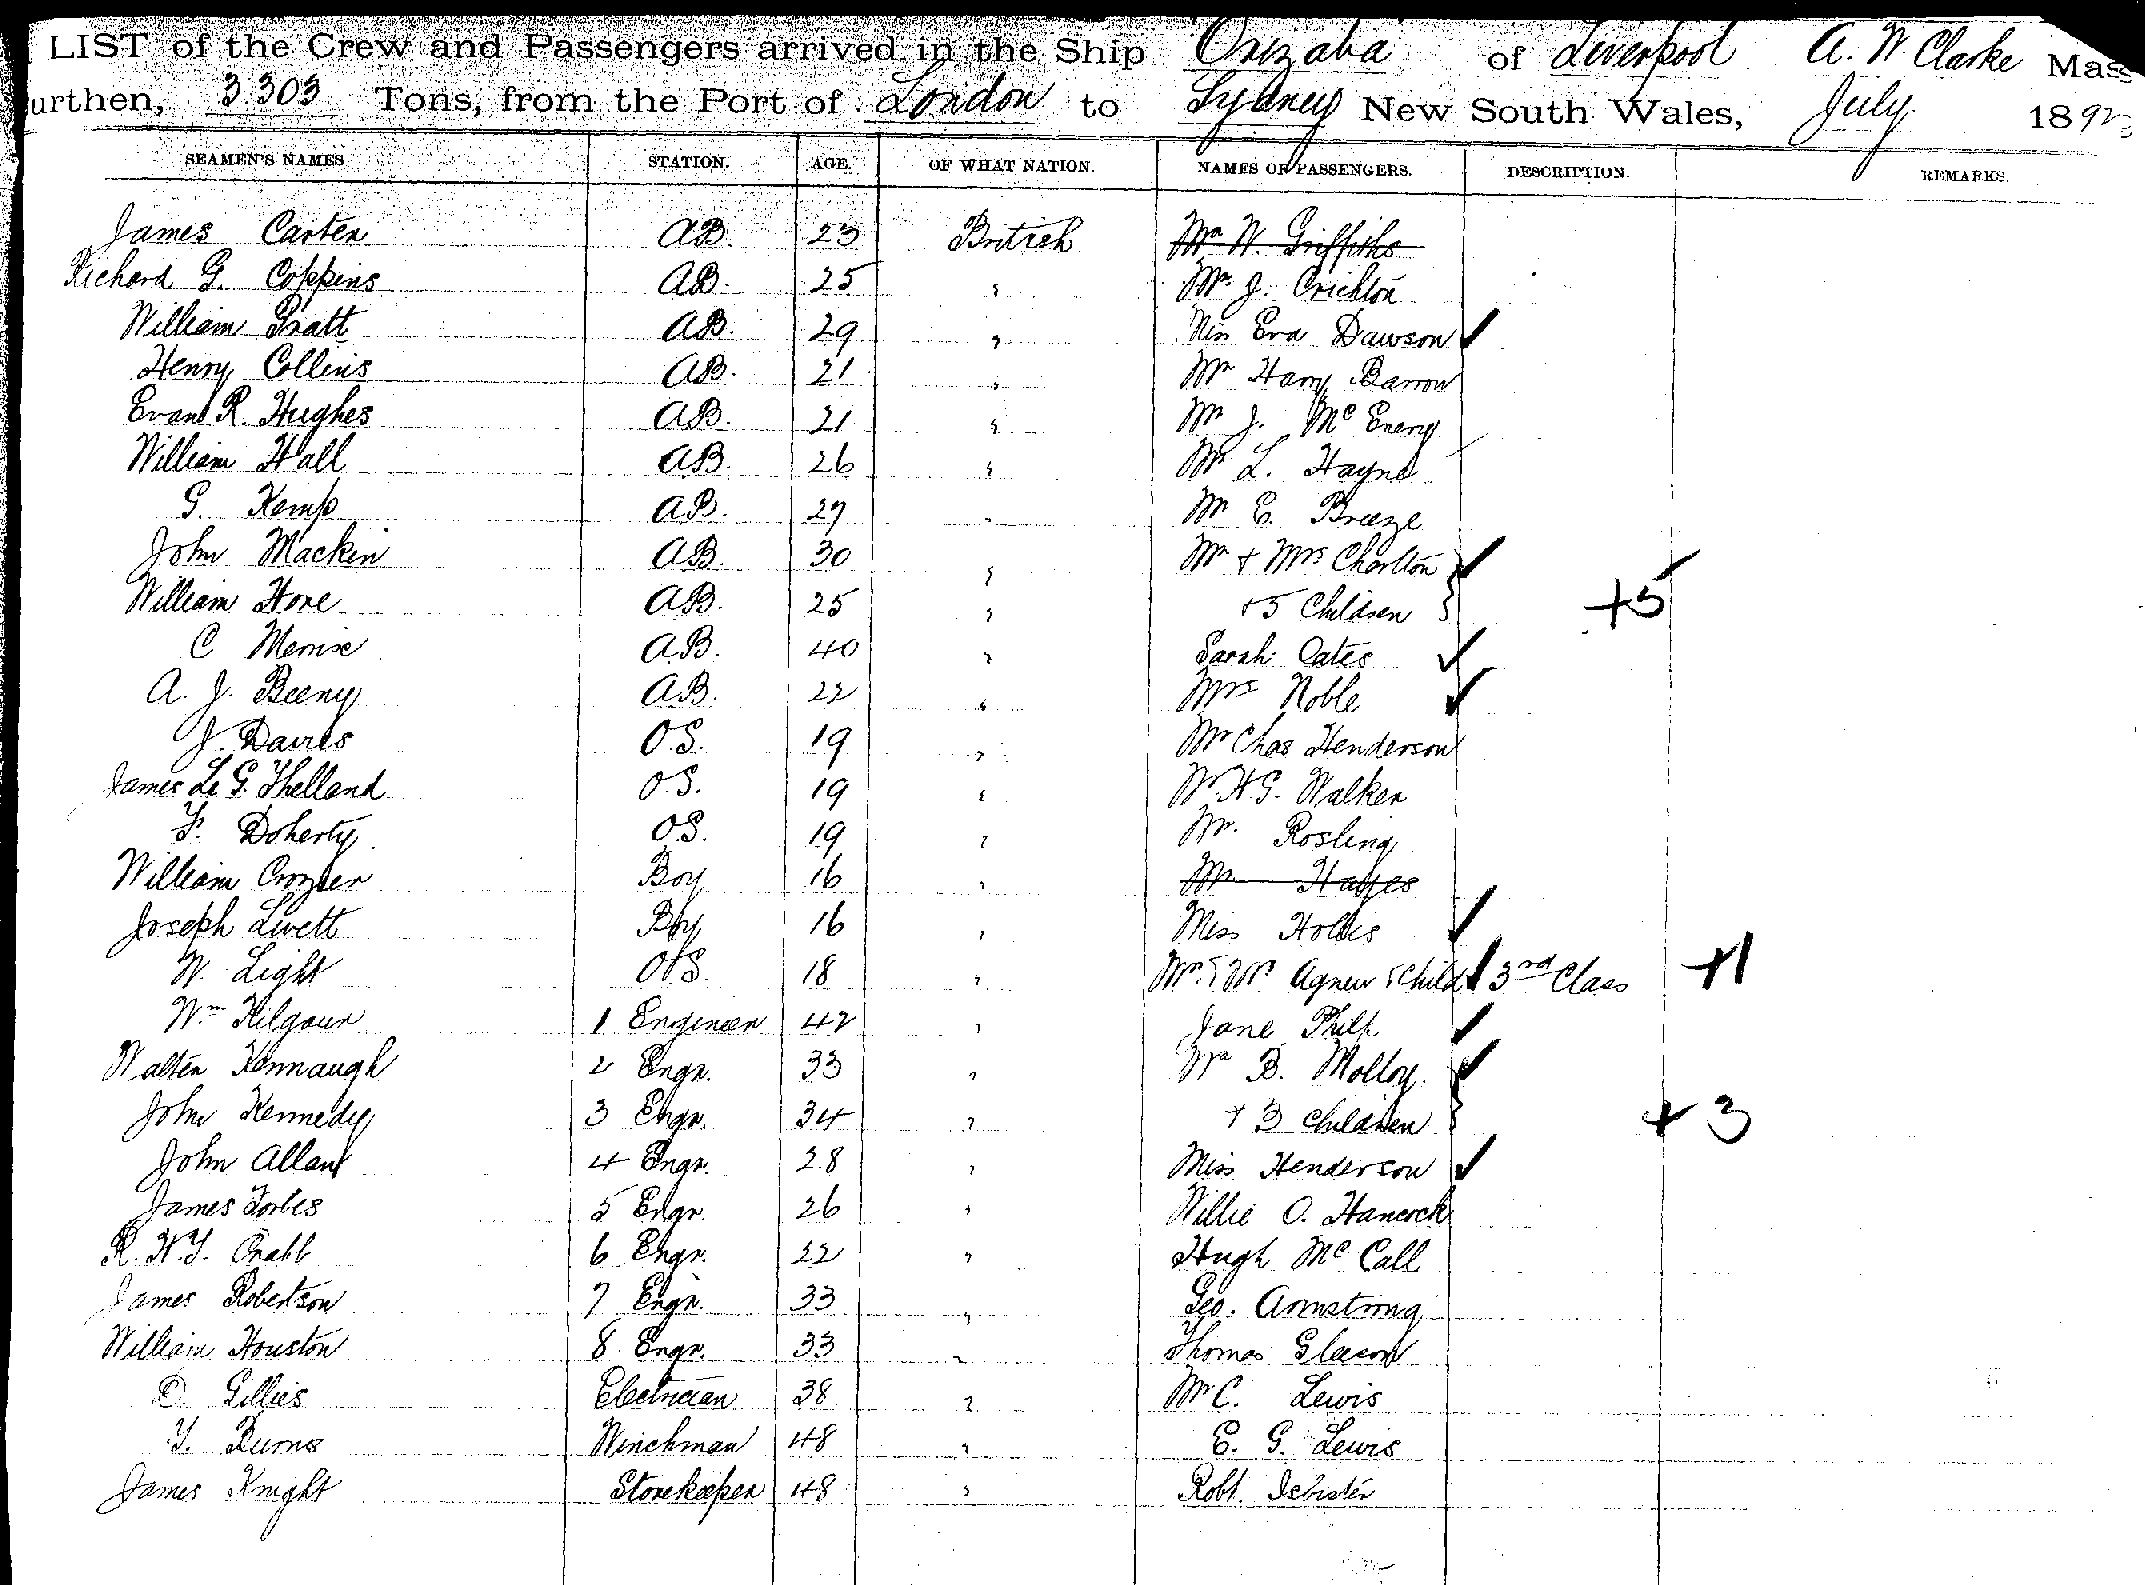 LIST of the Crew and Passengers arrived in the Ship Orizaba of Liverpool A. W Clarke Mas
urthen, 3.303 Tons, from the Port of London to Sydney New South Wales, July 1892
SEAMEN'S NAMES STATION. AGE. OF WHAT NATION. NAMES OF PASSENGERS. DESCRIPTION. REMARKS.
James Carter AB. 23 British Mr W. Griffiths
Richard G. Coppins AB. 25 " Mr J. Crichton
William Pratt AB. 29 " Miss Eva Dawson ✓
Henry Collins AB. 21 " Mr Harry Barrow
Evan R. Hughes AB. 21 " Mr J. Mc Enery
William Hall AB. 26 " Mr L. Hayne
G. Kemp AB. 27 " Mr E. Breeze
John Mackin AB. 30 " Mr + Mrs Charlton ✓
William Hore AB. 25 " + 5 Children } +5
C AB. 40 " Sarah Cates ✓
A. J. Beeny AB. 22 " Mrs Noble ✓
J. Davies O.S. 19 " Mr Chas Henderson
James Le G. O.S. 19 " H G. Walker
F. Doherty O.S. 19 " Mr. Rosling
William Crozier Boy 16 " Mr Hayes
Joseph Livett Boy 16 " Miss Hollis ✓
W. Light O.S. 18 " Mr & Mrs Agnew & Child ✓ 3rd Class +1
Wm Kilgour 1 Engineer 42 " Jane Philp ✓
Walter Kennaugh 2 Engr. 33 " B. Molloy ✓
John Kennedy 3 Engr. 34 " + 3 Children } + 3
John Allan 4 Engr. 28 " Miss Henderson ✓
James Forbes 5 Engr. 26 " Willie O. Hancock
R. W. J. Crabb 6 Engr. 22 " Hugh Mc Call
James Robertson 7 Engr. 33 " Geo. Armstrong
William Houston 8 Engr. 33 " Thomas Gleeson
D Gillies Electrician 38 " Mr C. Lewis
T. Burns Winchman 48 " E. G. Lewis
James Knight Storekeeper 48 " Robt.